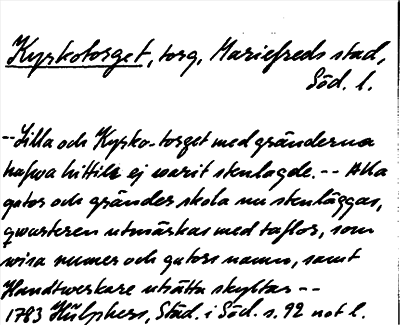 Kyrkotorget, torg, Mariefreds stad,
Söd. l.
--Lilla och Kyrko-torget med gränderna
hafwa hittils ej warit stenlagde. -- Alla
gator och gränder skola nu stenläggas,
qwarteren utmärkas med taflor, som
wisa numer och gators namn, samt
Handtwerkare utsätta skyltar --
1783 Hülphers, Städ. i Söd. s. 92 not l.